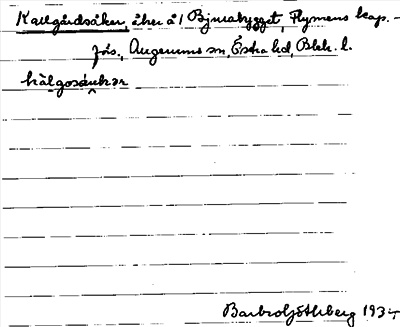 Kalvgårdsåker, åker å 1 Bjurabygget, Flymens kap.-
förs., Augerums sn, Östra hd, Blek. l.
kàlgosánkɘr
Barbro Göthberg 1934